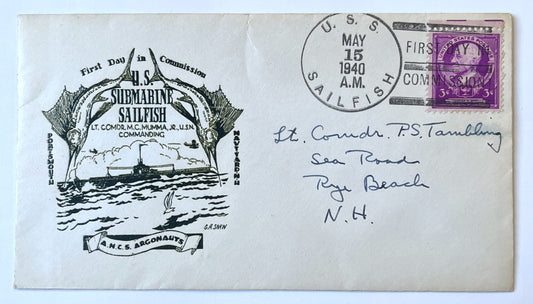 First Day in Commission
U.S.
SUBMARINE
SAILFISH
LT. COMDR. M.C. MUMMA, JR., U.S.N.
COMMANDING
PORTSMOUTH
NAVY YARD N.H.
A.N.C.S. ARGONAUTS
U.S.S. SAILFISH
MAY
15
1940
A.M.
FIRST DAY IN
COMMISSION
UNITED STATES POSTAGE
3¢ 3¢
Lt. Comdr. P.S. Tambling
Sea Road
Rye Beach
N.H.